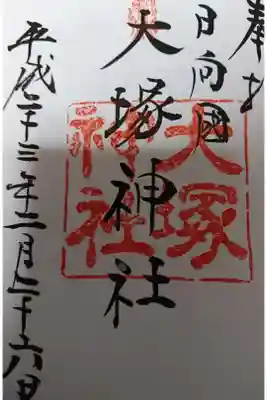 奉拝
日向國
大塚神社
大塚神社
平成二十三年二月二十六日